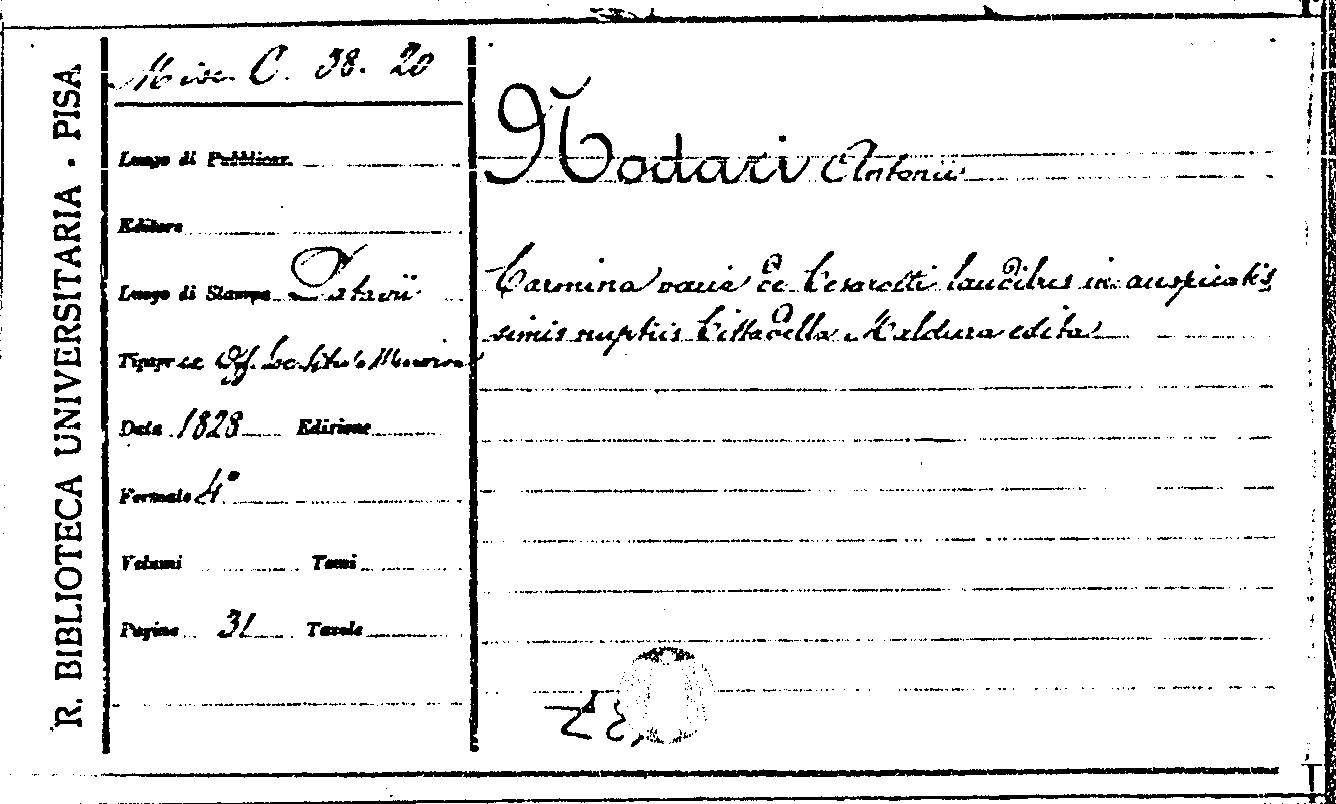 R. BIBLIOTECA UNIVERSITARIA - PISA
Misc. C. 38. 20
Luogo di Pubblicaz.
Editore
Luogo di Stampa Patavii
Tipogr ex Off. Minerva
Data 1828 Edizione
Formato 4°
Volumi Tomi
Pagine 31 Tavole
Nodari Antonii
Carmina varia de Cesarotti laudibus in auspicatis
simis nuptiis Cittadella Maldura edita